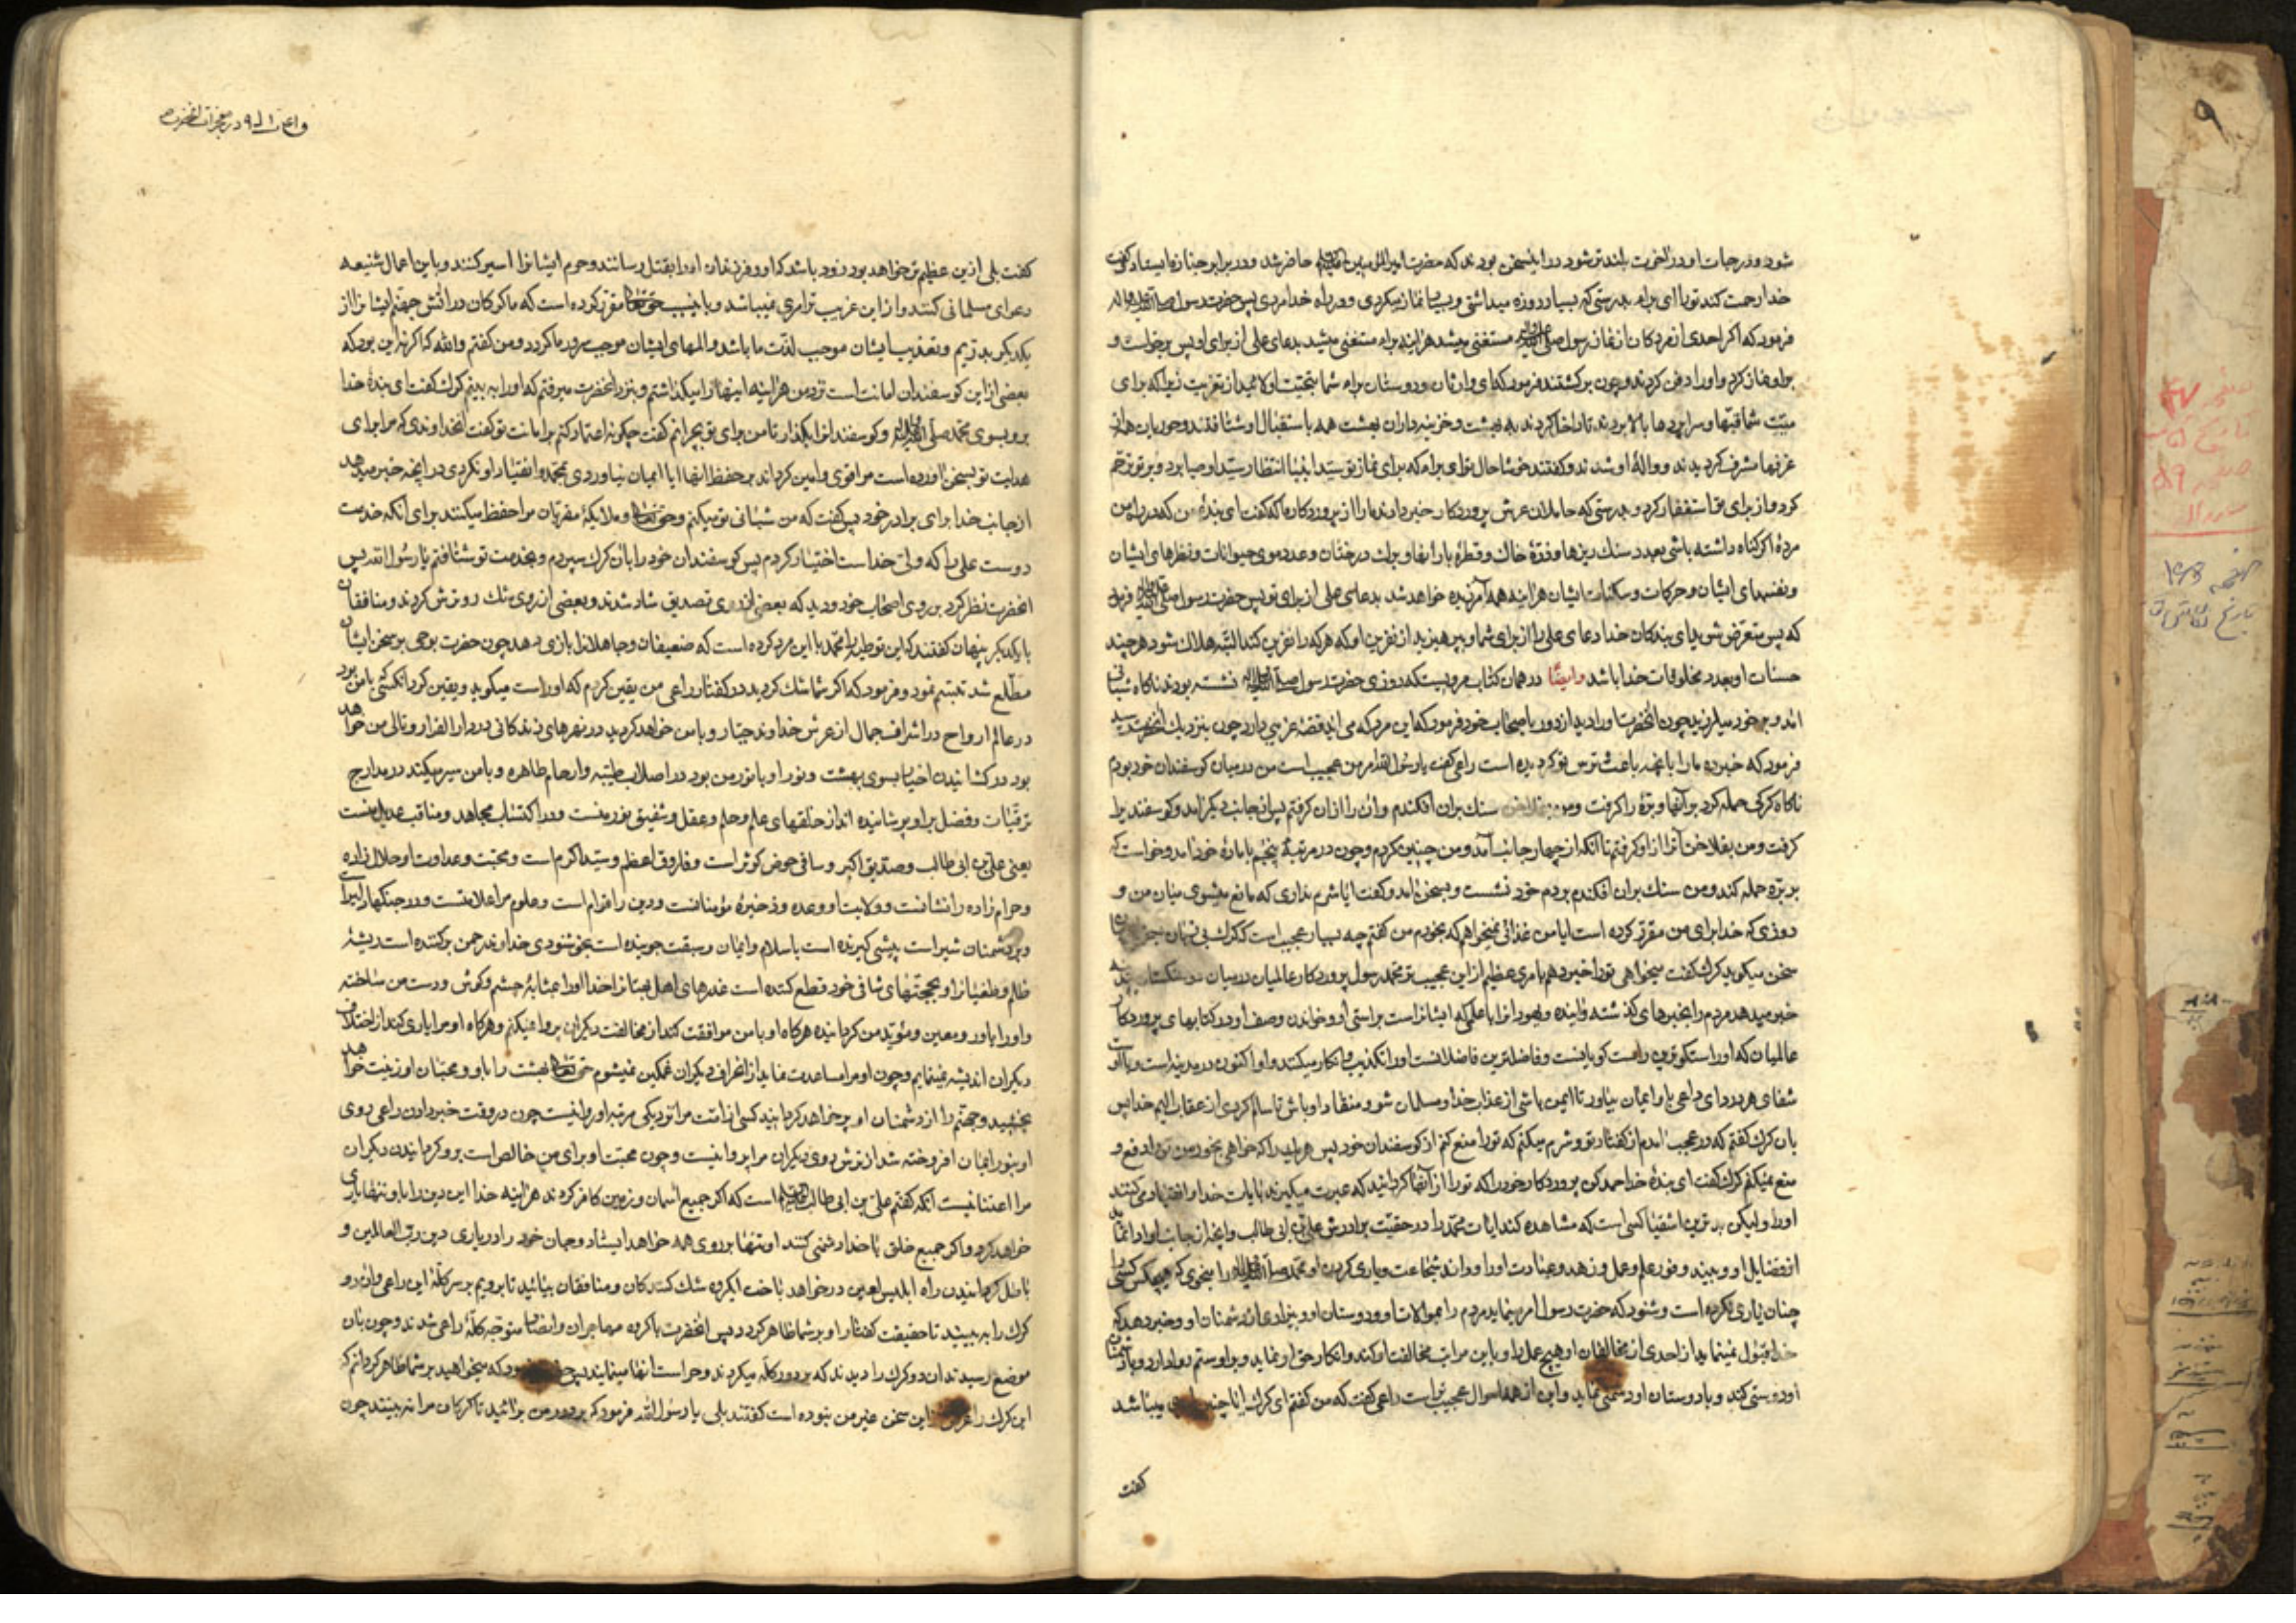 شود و درجات او در آخرت بلندتر شود در این سخن بودند که حضرت امیرالمؤمنین حاضر شد و در برابر جنازه ایستاد و گفت
خدا رحمت کند تو را ای براء بدرستی که بسیار روزه میداشتی و بسیار نماز میکردی و در راه خدا مردی پس حضرت رسول صلی الله علیه و اله
فرمود که اگر احدی از مردگان از نماز رسول صلی الله علیه و اله مستغنی میشد هراینه براء مستغنی میشد بدعای علی از برای او پس برخواست و
براو نماز کرد و او را دفن کردند و چون برگشتند فرمود که ای وارثان و دوستان براء شما بتهنیت اولائید از تعزیت زیرا که برای
میت شما قبها و سراپردها بالا بردند تا داخل کردند به بهشت و خزینه داران بهشت همه باستقبال او شتافتند و حوریان از
غرفها مشرف گردیدند و واله او شدند و گفتند خوشا حال تو ای براء که برای نماز تو سید انبیا انتظار سید اوصیا برد و بر تو ترحم
کرد و از برای تو استغفار کرد و بدرستی که حاملان عرش پروردگار خبر دادند ما را از پروردگار ما که گفت ای بندهٔ من که در راه من
مردهٔ اگر گناه داشته باشی بعدد سنک ریزها و ذرهٔ خاک و قطرهٔ بارانها و برک درختان و عدد موی حیوانات و نظرهای ایشان
و نفسهای ایشان و حرکات و سکنات ایشان هراینه همه آمرزیده خواهد شد بدعای علی از برای تو پس حضرت رسول صلی الله علیه و اله فرمود
که پس متعرض شوید ای بندگان خدا دعای علی را از برای شما و بپرهیزید از نفرین او که هر که را نفرین کند البته هلاک شود هرچند
حسنات او بعدد مخلوقات خدا باشد وایضا در همان کتاب مرویست که روزی حضرت رسول صلی الله علیه و اله نشسته بودند ناگاه شبانی
آمد و بر خود میلرزید چون آنحضرت او را دید از دور باصحاب خود فرمود که این مرد که می اید قصهٔ غریبی دارد چون بنزدیک آنحضرت رسید
فرمود که خبر ده ما را بانچه باعث ترس تو گردیده است راعی گفت یا رسول الله امر من عجیب است من در میان گوسفندان خود بودم
ناگاه گرکی حمله کرد بر آنها و برهٔ را گرفت و من بفلاخن سنک بران افکندم و آن را ازان گرفتم پس از جانب دیگر آمد و گوسفند را
گرفت و من بفلاخن آنرا از او گرفتم تا آنکه از چهار جانب آمد و من چنین کردم و چون در مرتبهٔ پنجم با مادهٔ خود آمد و خواست که
بر بره حمله کند و من سنک بران افکندم بر دم خود نشست و بسخن امد و گفت ایا شرم نداری که مانع میشوی میان من و
روزی که خدا برای من مقرر کرده است ایا من غذائی نمیخواهم که بخورم من گفتم چه بسیار عجیب است که گرک بی زبان بسخن
سخن میگوید گرک گفت میخواهی تو را خبر دهم بامری عظیم از این عجیب تر محمد رسول پروردگار عالمیان در میان دو سنگستان مدینه
خبر میدهد مردم را بخبرهای گذشته و آینده و یهود آنرا با علمی که ایشانراست براستی او و خواندن وصف او در کتابهای پروردگار
عالمیان که او راستگوترین راست گویانست و فاضلترین فاضلانست او را تکذیب و انکار میکنند و او اکنون در مدینه است و با اوست
شفای هر درد ای راعی باو ایمان بیاور تا ایمن باشی از عذاب خدا و مسلمان شو و منقاد او باش تا سالم گردی از عقاب الیم خدا پس
بان گرک گفتم که در عجب امدم از گفتار تو و شرم میکنم که تو را منع کنم از گوسفندان خود پس هریک را که خواهی بخور من تو را دفع و
منع نمیکنم گرک گفت ای بندهٔ خدا حمد کن پروردگار خود را که تو را از آنها گردانید که عبرت میگیرند بایات خدا و انقیاد می کنند
او را ولیکن بدترین اشقیا کسی است که مشاهده کند ایات محمد را در حقیت برادرش علی بن ابی طالب و انچه از جانب او ادا نماید
از فضایل او و ببیند وفور علم و عمل و زهد و عبادت او را و داند شجاعت و یاری کردن او محمد صلی الله علیه و اله را بنحوی که هیچکس کسی را
چنان یاری نکرده است و شنود که حضرت رسول امر مینماید مردم را بموالات او و دوستان او و بیزاری از دشمنان او و خبر دهد که
خدا قبول نمینماید از احدی از مخالفان او هیچ عمل را و با این مراتب مخالفت او کند و انکار حق او نماید و بر او ستم روا دارد و با دشمنان
او دوستی کند و با دوستان او دشمنی نماید و این از همه احوال عجیب تر است راعی گفت که من گفتم ای گرک ایا چنین امری میباشد
گفت
گفت بلی از این عظیم تر خواهد بود زود باشد که او و فرزندان او را بقتل رسانند و حرم ایشانرا اسیر کنند و با این اعمال شنیعه
دعوای مسلمانی کنند و از این غریب تر امری نمیباشد و باین سبب حق تعالی مقرر کرده است که ما گرگان در آتش جهنم ایشانرا از
یکدیگر بدریم و تعذیب ایشان موجب لذت ما باشد و المهای ایشان موجب سرور ما گردد و من گفتم والله که اگر نه این بود که
بعضی از این گوسفندان امانت است نزد من هراینه اینها را میگذاشتم و بنزد آنحضرت میرفتم که او را به بینم گرک گفت ای بندهٔ خدا
برو بسوی محمد صلی الله علیه و اله و گوسفندانرا بگذار تا من برای تو بچرانم گفت چگونه اعتماد کنم بر امانت تو گفت آنخداوندی که مرا برای
هدایت تو بسخن آورده است مرا قوی و امین گرداند بر حفظ اینها ایا ایمان نیاوردی بمحمد و انقیاد او نکردی در انچه خبر میدهد
از جانب خدا برای برادر خود پس گفت که من شبانی تو میکنم و حق تعالی و ملایکهٔ مقربان مرا حفظ میکنند برای آنکه خدمت
دوست علی را که ولی خداست اختیار کردم پس گوسفندان خود را بان گرک سپردم و بخدمت تو شتافتم یا رسول الله پس
آنحضرت نظر کرد بر روی اصحاب خود و دید که بعضی از روی تصدیق شاد شدند و بعضی از روی شک رو ترش کردند و منافقان
با یکدیگر پنهان گفتند که این توطیه را محمد با این مرد کرده است که ضعیفان و جاهلانرا بازی دهد چون حضرت بوحی بر سخن ایشان
مطلع شد تبسم نمود و فرمود که اگر شما شک کردید در گفتار راعی من یقین کردم که او راست میگوید و یقین کرد آنکسی با من بود
در عالم ارواح در اشراف جمال از عرش خداوند جبار و با من خواهد گردید در نهرهای زندگانی در دار القرار و تالی من خواهد
بود در کشانیدن اخیار بسوی بهشت و نور او با نور من بود در اصلاب طیبه و ارحام طاهره و با من سیر میکند در مدارج
ترقیات و فضل بر او پوشانیده اند از خلقهای علم و حلم و عقل و شفیق نور منست و در اکتساب محامد و مناقب عدیل منست
یعنی علی بن ابی طالب و صدیق اکبر و ساقی حوض کوثر است و فاروق اعظم و سید اکرم است و محبت و عداوت او حلال زاده
و حرام زاده را نشانست و ولایت او وعده و ذخیرهٔ مؤمنانست و دین را قوام است و علوم مرا علامتست و در جنگها
و بر دشمنان شیر است پیشی گیرنده است باسلام و ایمان و سبقت جوینده است بخوشنودی خداوند رحمن برکننده است ریشهٔ
ظلم و طغیانرا و بحجتهای شافی خود قطع کننده است عذرهای اهل بهتانرا خدا او را بمثابهٔ چشم و گوش و دست من ساخته
و او را یاور و معین و مؤید من گردانیده هرگاه او با من موافقت کند از مخالفت دیگران پروا نمیکنم و هرگاه او مرا یاری کند از اختلاف
دیگران اندیشه نمینمایم و چون او مرا مساعدت نماید از انحراف دیگران غمگین نمیشوم حق تعالی بهشت را باو و محبان او زینت خواهد
بخشید و جهنم را از دشمنان او پر خواهد گردانید کسی از امت مرا نزدیکی مرتبه او روا نیست چون در وقت خبر دادن راعی روی
او بنور ایمان افروخته شد از ترش روی دیگران مرا پروا نیست و چون محبت او برای من خالص است بروگردانیدن دیگران
مرا اعتنا نیست آنکه گفتم علی بن ابی طالب است که اگر جمیع آسمان و زمین کافر گردند هراینه خدا این دین را باو تنها یاری
خواهد کرد و اگر جمیع خلق با خدا دشمنی کنند او تنها بر روی همه خواهد ایستاد و جان خود را در یاری دین رب العالمین و
باطل گردانیدن راه ابلیس لعین در خواهد باخت ای گروه شک کنندگان و منافقان بیائید تا برویم بر سر گلهٔ این راعی و ان دو
گرک را به بینید تا حقیقت گفتار او بر شما ظاهر گردد پس آنحضرت با گروه مهاجران و انصار متوجه گلهٔ راعی شدند و چون بان
موضع رسیدند ان دو گرک را دیدند که بر دور گله میگردند و حراست آنها مینمایند پس که میخواهید بر شما ظاهر گردانم که
این گرک را از این سخن غیر من نبوده است گفتند بلی یا رسول الله فرمود که بر دور من برائید تا گرگان مرا نه بینند چون